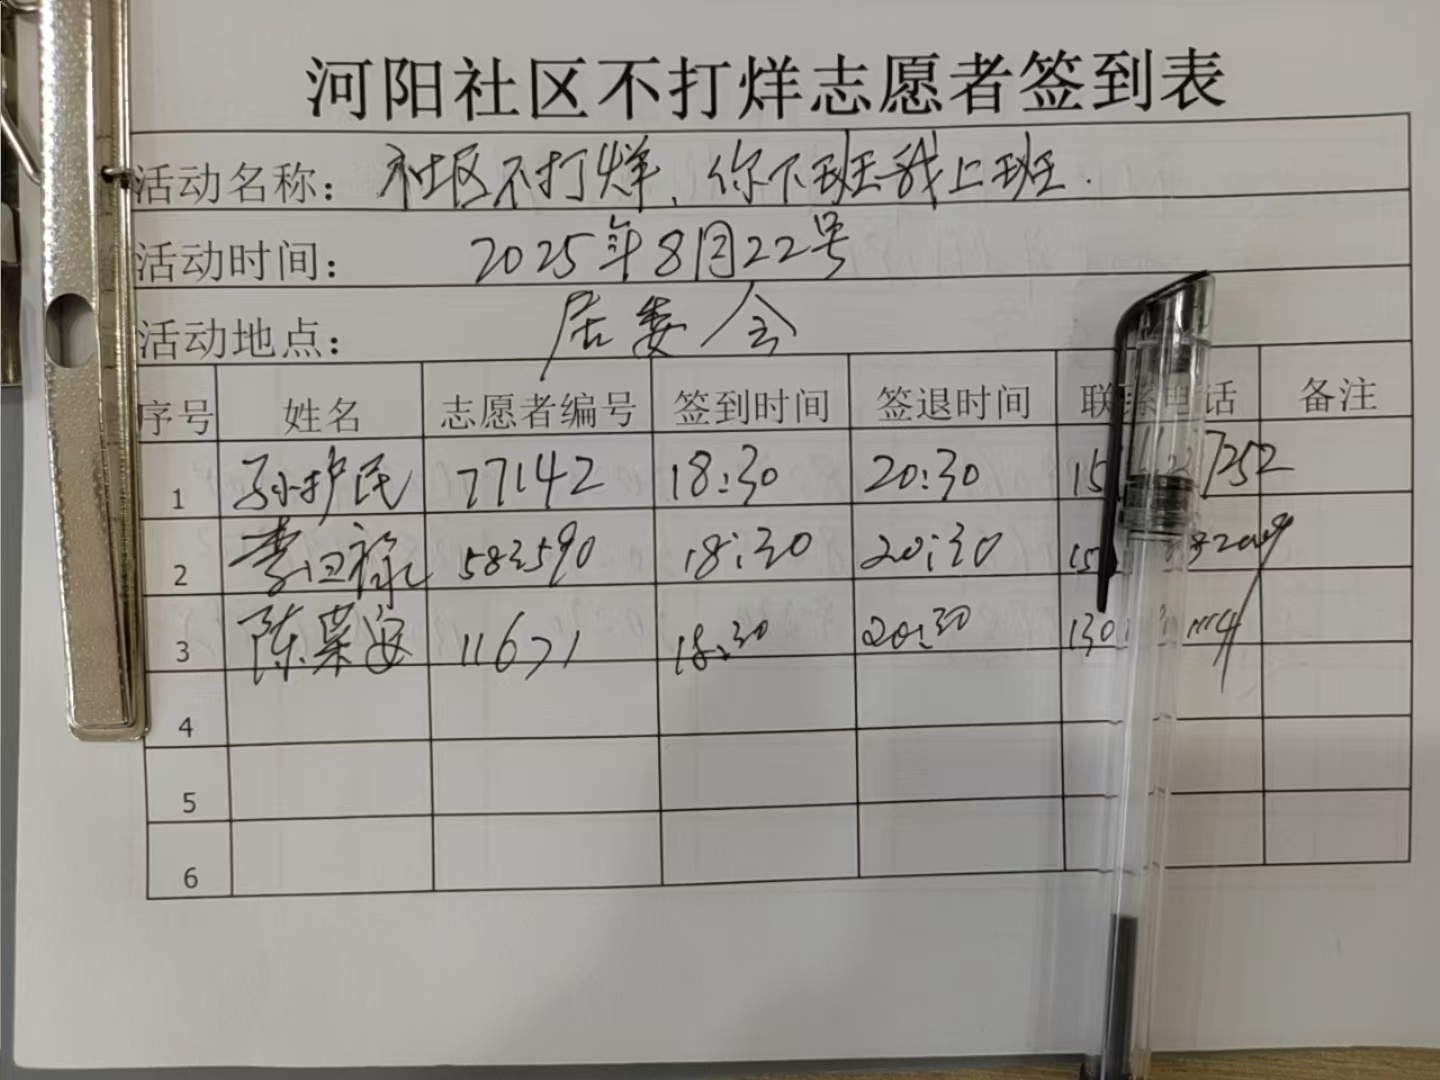 河阳社区不打烊志愿者签到表
活动名称： 社区不打烊、你下班我上班.
活动时间： 2025年8月22号
活动地点： 居委会
序号 姓名 志愿者编号 签到时间 签退时间 联系电话 备注
1 孙护民 77142 18:30 20:30 15 7252
2 李回禄 583590 18:30 20:30 15
3 陈荣安 11671 18:30 20:30 130
4
5
6